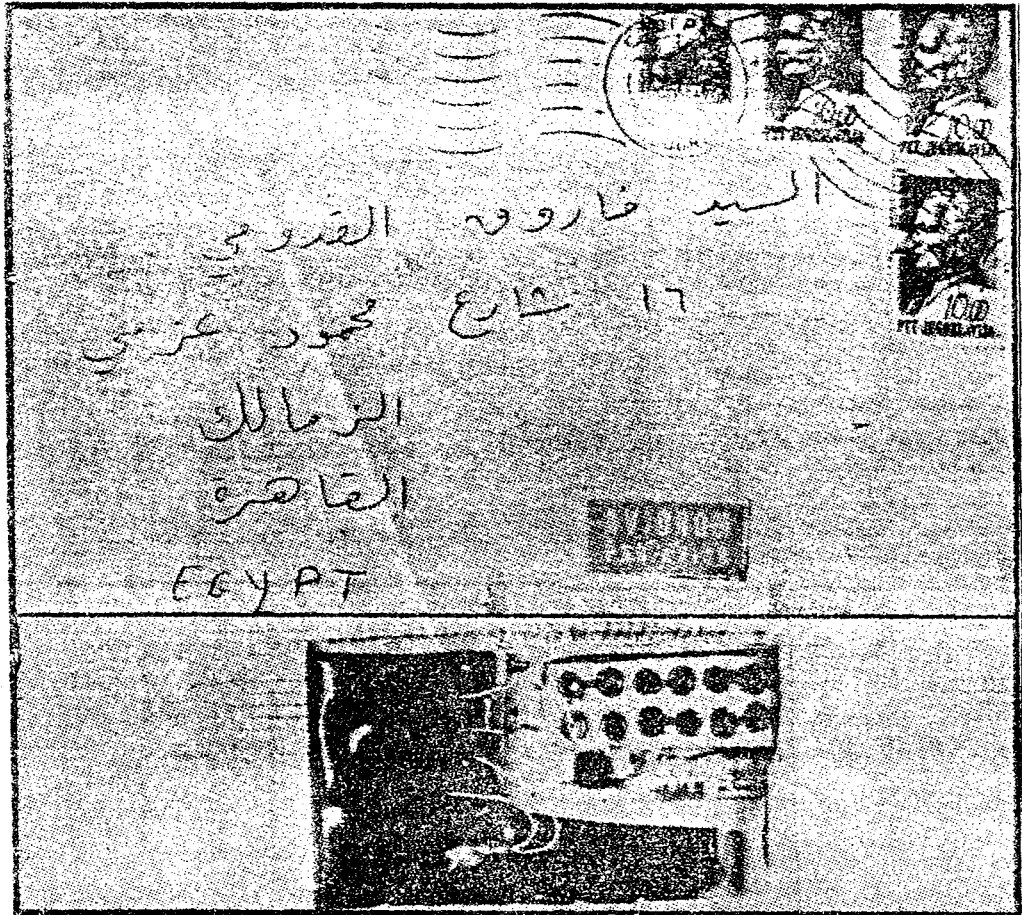 10.00
10.00
PTT JUGOSLAVIJA
10.00
PTT JUGOSLAVIJA
السيد فاروق القدومي
١٦ شارع محمود عزمي
الزمالك
القاهرة
EGYPT